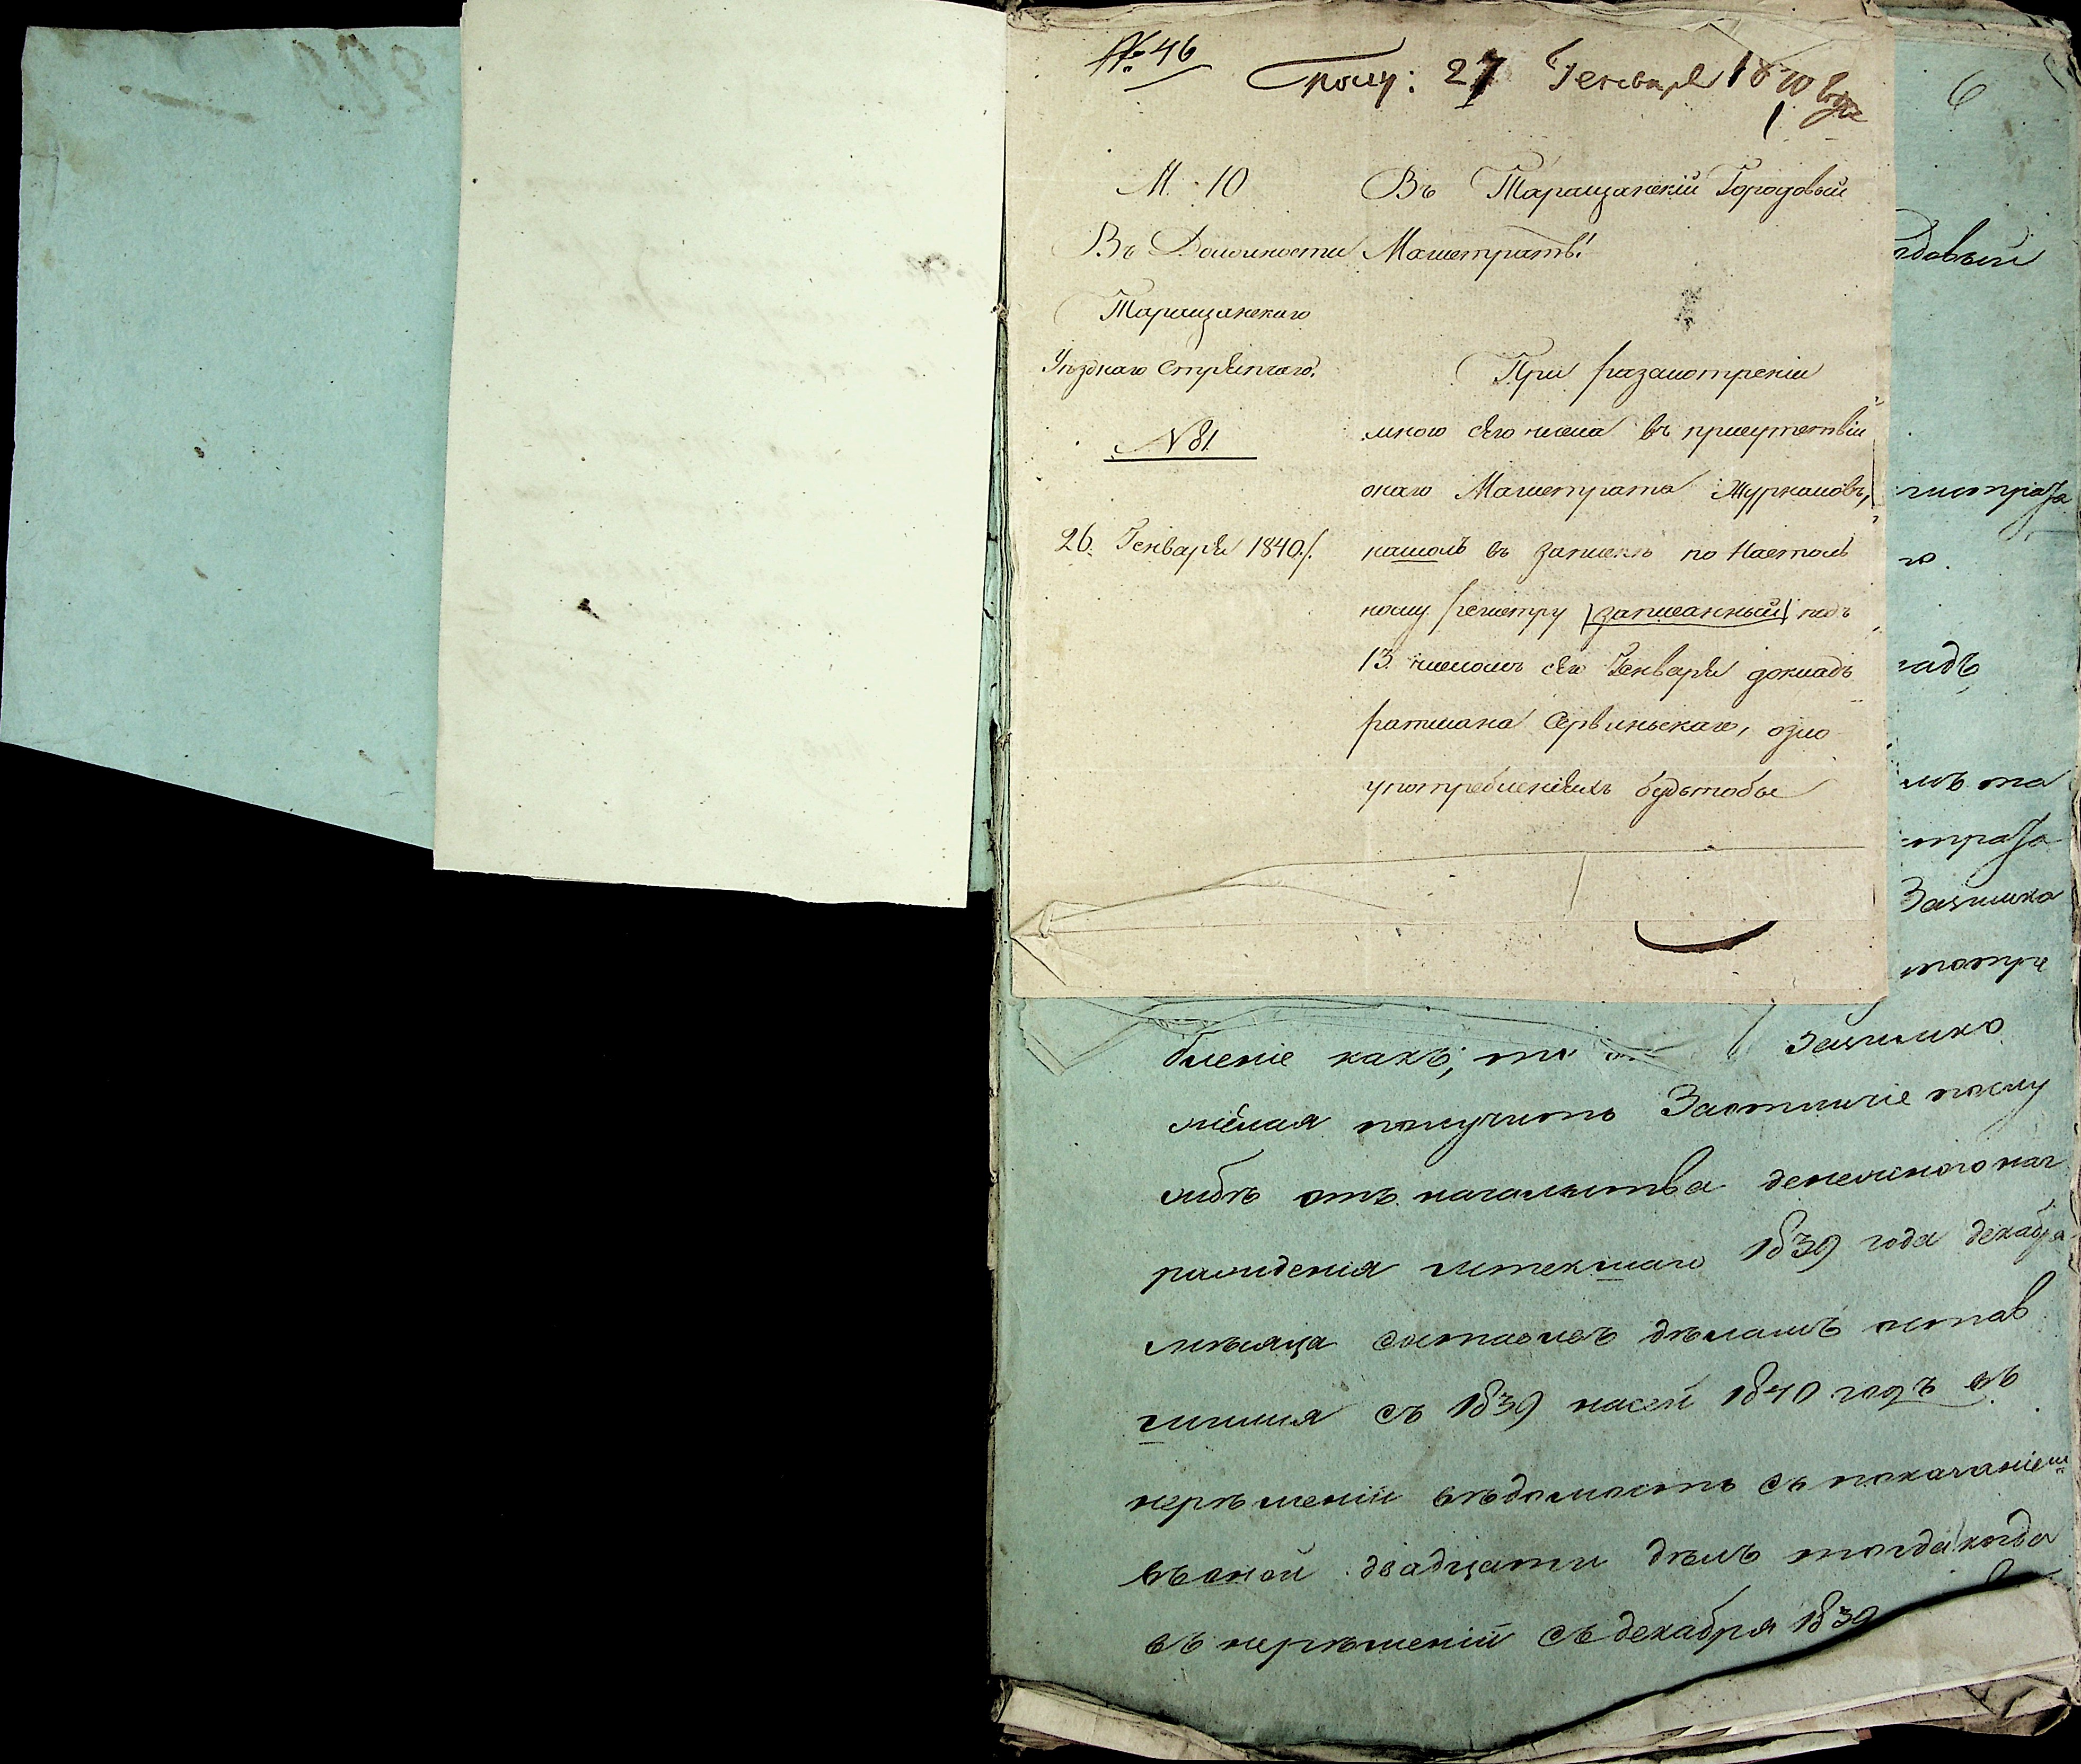 № 46
Получ: 27 Генваря 1840 года
6
М. 10
Въ Должности
Таращанскаго
Уѣзднаго Стряпчаго.
N 81
26. Генваря 1840 г.
Въ Таращанскій Городовый
Магистратъ!
При разсмотреніи
мною сего числа въ присутствіи
онаго Магистрата Журналовъ,
нашолъ въ записке по настоль
ному регистру записанный подъ
13. числомъ сего Генваря докладъ
ратмана Сервиньскаго, озло
употребленіяхъ будьтобы
одовый
гистрата
го.
ладъ
лъ та
трата
Зацышка
бленіе какъ, то
желая получить Заотличіе послу
жбѣ отъ начальства денежного наг
ражденія истекшаго 1839 года декабря
мѣсяца составлѣ дѣламъ остав
шимся съ 1839 насей 1840 годъ въ
нерѣшеніи вѣдомость съ показаніем
въоной двадцати дѣлъ тогда когда
въ нерѣшеній съ декабря 1839